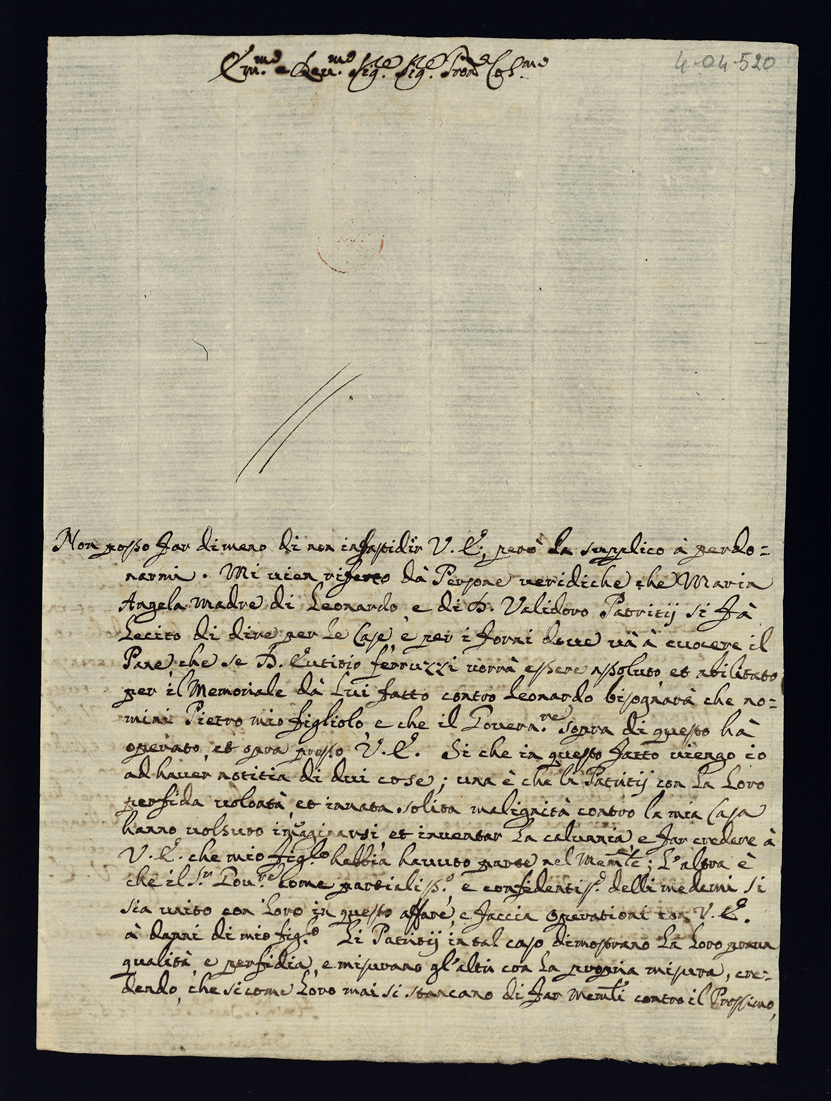 Em.mo e Reu.mo Sig.e Sig.e Pron.e Col.mo
4-04-520
Non posso far dimeno di non infastidir V. E., però la supplico à perdo=
narmi. Mi uien riferto dà Persone ueridiche che Maria
Angela madre di Leonardo e di D. Validoro Patritij si fà
lecito di dire per le Case e per i forni doue uà à cuocere il
Pane, che se D. Eutitio ferruzzi uorrà essere assoluto, et abilitato
per il Memoriale dà lui fatto contro Leonardo bisognarà che no=
mini Pietro mio figliolo, e che il Gouern.re sopra di questo hà
operato, et opra presso V. E. Si che in questo fatto uiengo io
ad hauer notitia di dui cose; una è che li Patritij con la loro
perfida uolontà, et innata solita malignità contro la mia Casa
hanno uolsuto imaginarsi, et inuentar la calunnia e far credere à
V. E. che mio figl.o habbia hauuto parte nel Mem.le; L'altra è
che il S.r Gou.re come partialiss.o e confidentis.o delli medemi si
sia unito con loro in questo affare, e faccia operationi con V. E.
à danni di mio fig.o Li Patritij in tal caso dimostrano la loro praua
qualità e perfidia, e misurano gl'altri con la propria misura, cre=
dendo, che sicome loro mai si stancano di far Mem.li contro il Prossimo,